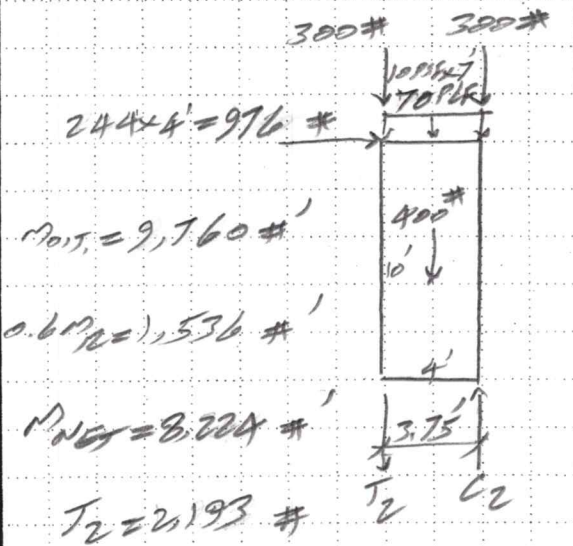 300# 300#
10PSFx7'
70PLF
244x4'=976 #
MO.T. = 9,760 #'
400#
10'
0.6MR=1,536 #'
4'
MNET=8,224 #'
3.75'
T2 C2
T2=2,193 #